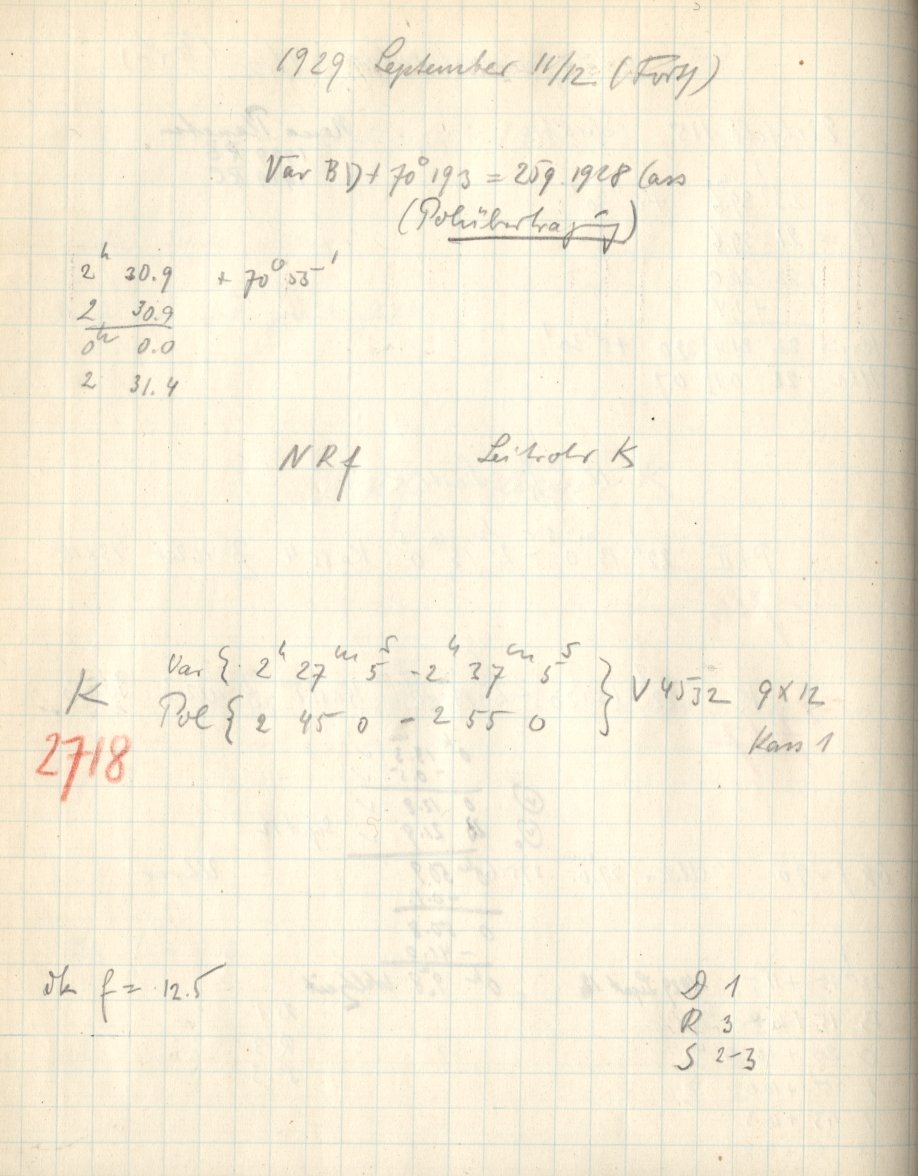 1929 September 11/12 (Forts)
Var BD + 70° 193 = 259.1928 Cass
(Polübertragung)
2h 30.9 + 70° 55'
2 30.9
0h 0.0
2 31.4
NRf Leitrohr K
Var { 2h 27m 5s - 2h 37m 5s } V4532 9x12
K Pol { 2 45 0 - 2 55 0
2718 Kass 1
f = 12.5 D 1
R 3
S 2-3